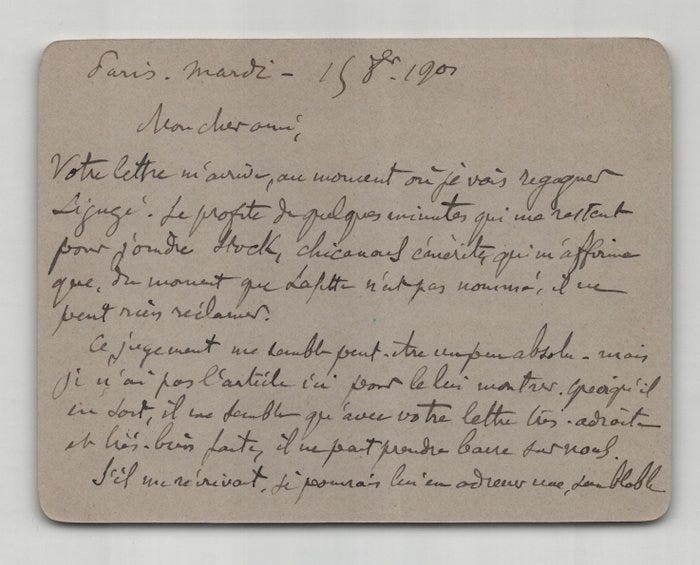 Paris. mardi - 15 8bre. 1901
Mon cher ami,
Votre lettre m'arrive, au moment où je vais regagner
Ligugé. Je profite de quelques minutes qui me restent
pour joindre Stock, chicanous émérite, qui m'affirme
que, du moment que Lafitte n'est pas nommé, il ne
peut rien réclamer.
Ce jugement me semble peut-être un peu absolu - mais
je n'ai pas l'article ici pour le lui montrer. Quoiqu'il
en soit, il me semble qu'avec votre lettre très-adroite
et très-bien faite, il ne peut prendre barre sur nous.
S'il me récrivait, je pourrais lui en adresser une, semblable